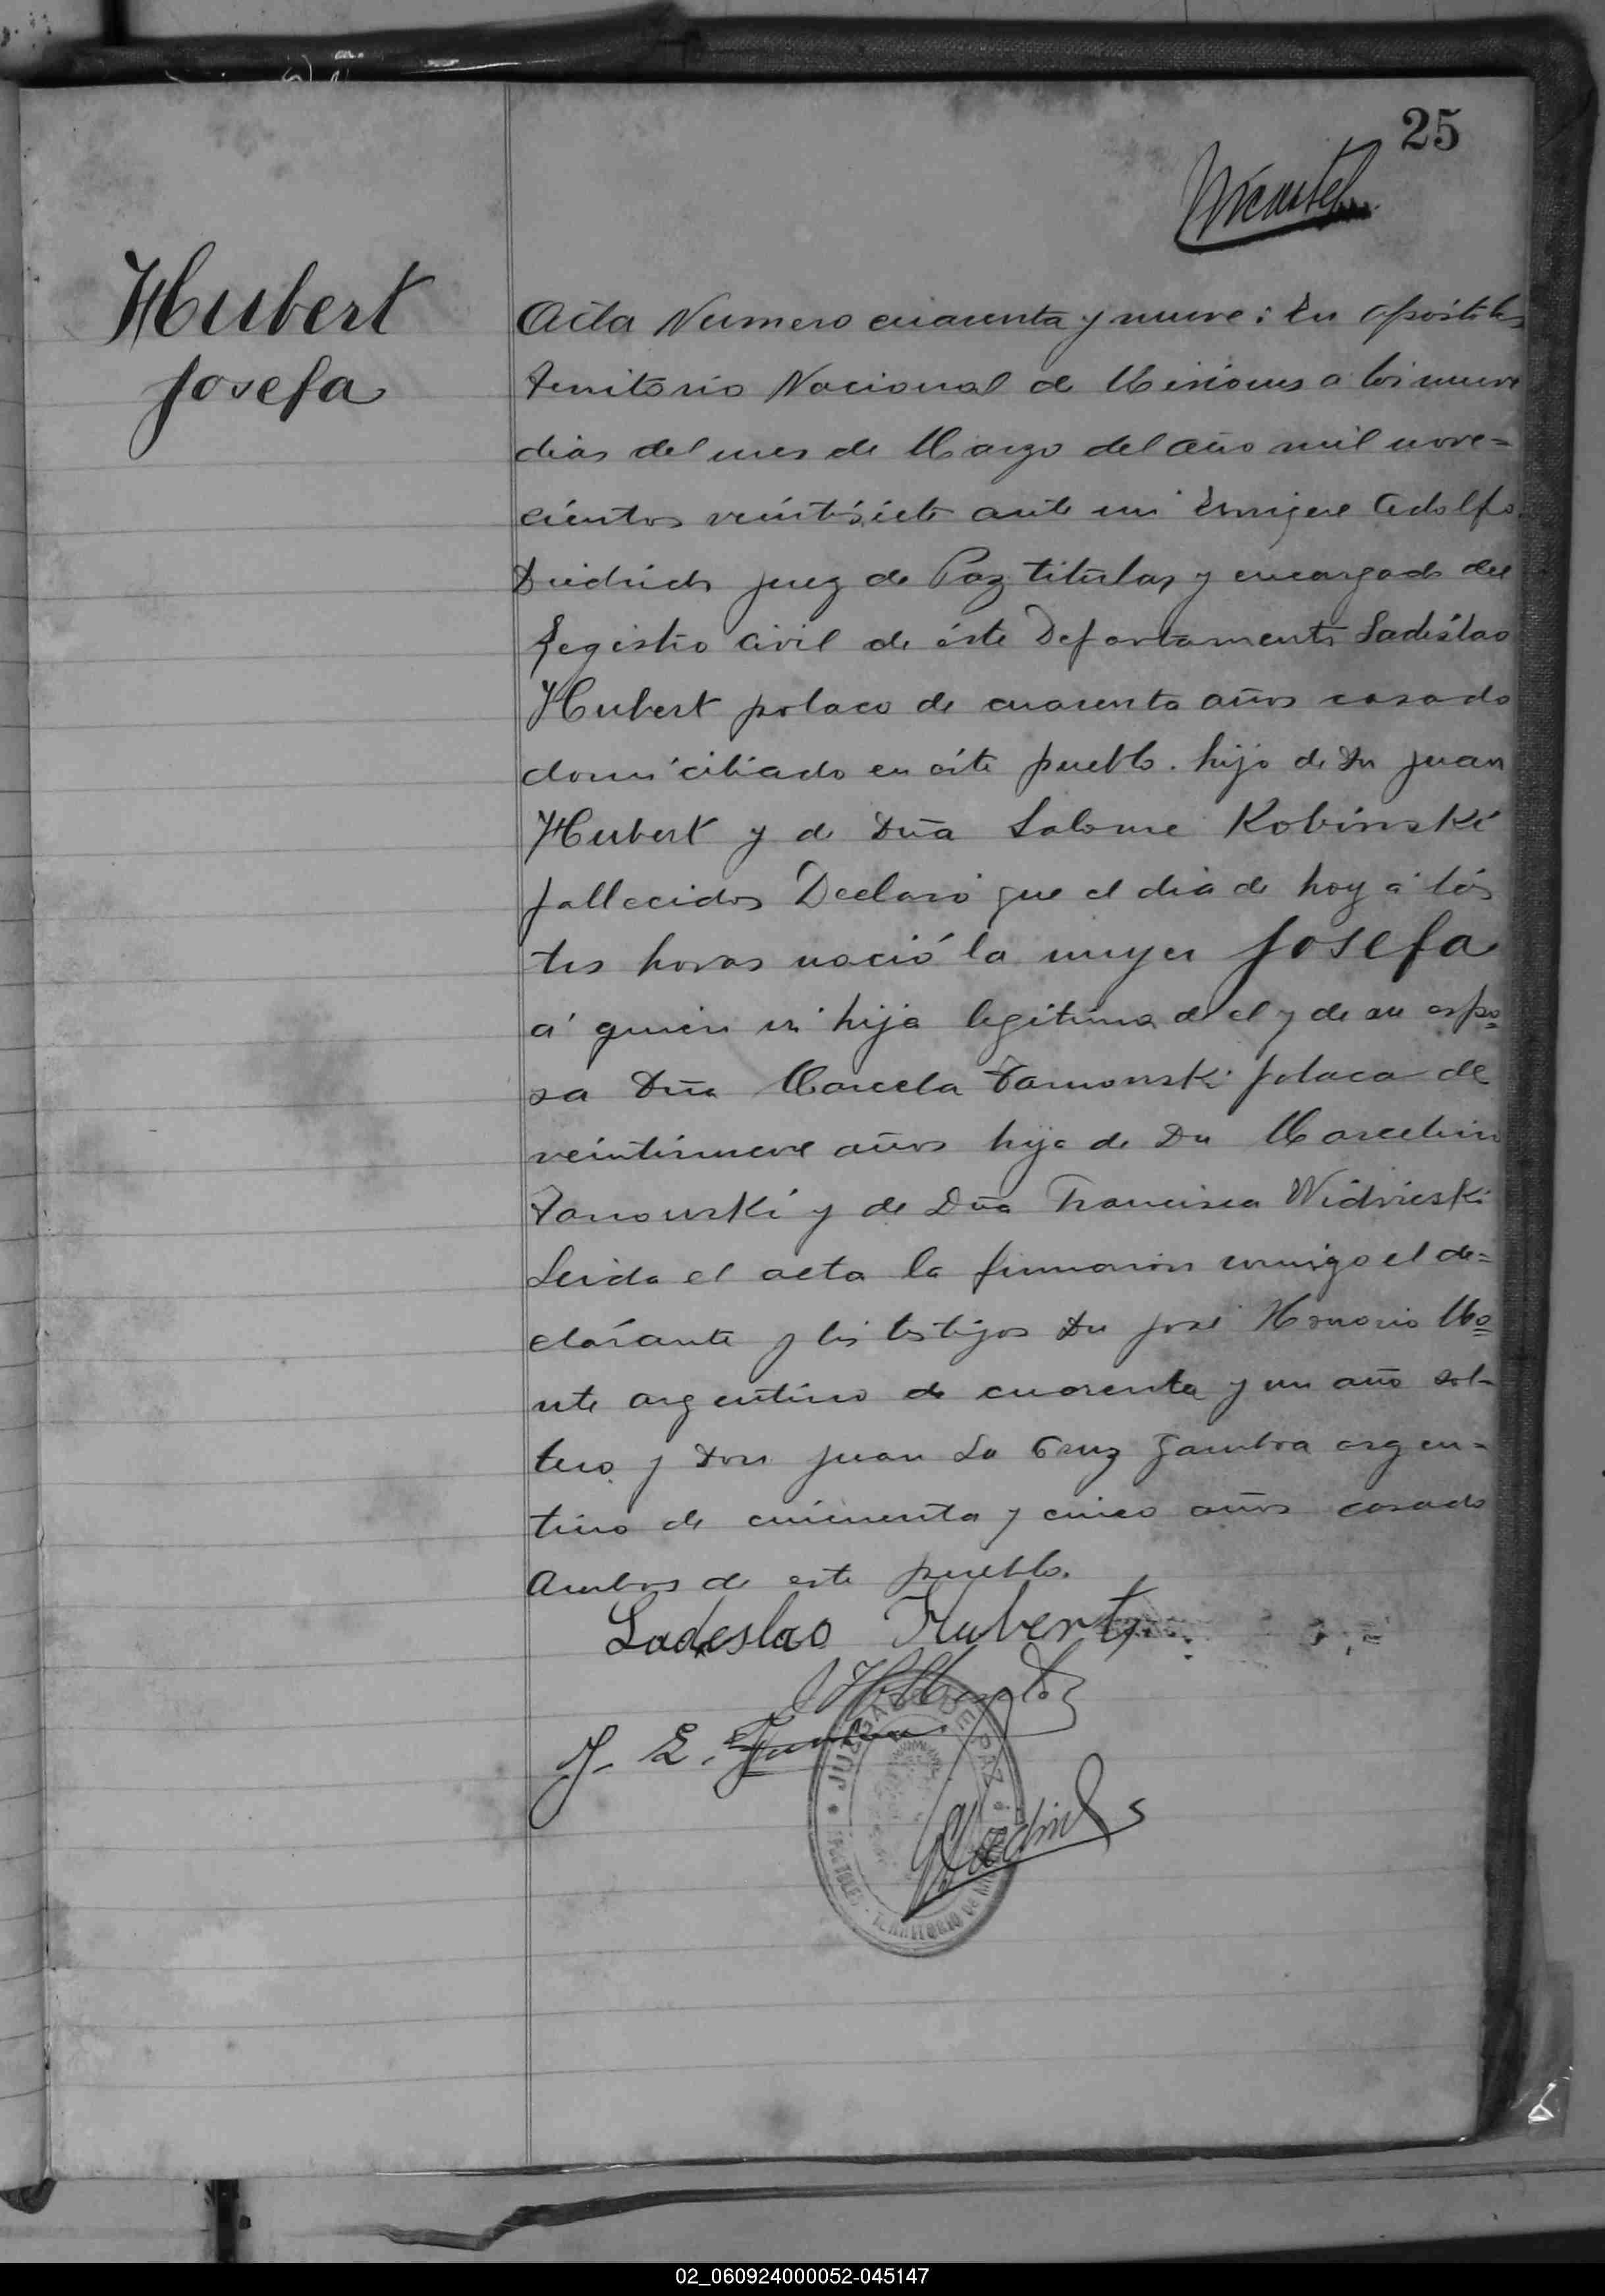 25
Hubert
Josefa
Acta Numero cuarenta y nueve: En Apóstoles
Territorio Nacional de Misiones a los nueve
dias del mes de Marzo del año mil nove=
cientos veintisiete ante mi Enrique Adolfo
Diedrichs Juez de Paz titular y encargado del
Registro Civil de éste Departamento Ladislao
Hubert polaco de cuarenta años casado
domiciliado en éste pueblo. hijo de Dn Juan
Hubert y de Dña Salome Kobinski
fallecidos Declaró que el dia de hoy á las
tres horas nació la mujer Josefa
á quien es hija legitima de el y de su espo=
sa Dña Marcela polaca de
veintinueve años hija de Dn Marcelino
y de Dña Francisca Widrieski
Leida el acta la firmaron conmigo el de=
clarante y los testigos Dn José Honorio Mo=
nte argentino de cuarenta y un año sol-
tero y Don Juan La Cruz Gamboa argen=
tino de cincuenta y cinco años casado
Ambos de este pueblo.
Ladeslao Hubert
J. L.
JUZGADO DE PAZ
APOSTOLES - TERRITORIO DE
02_060924000052-045147